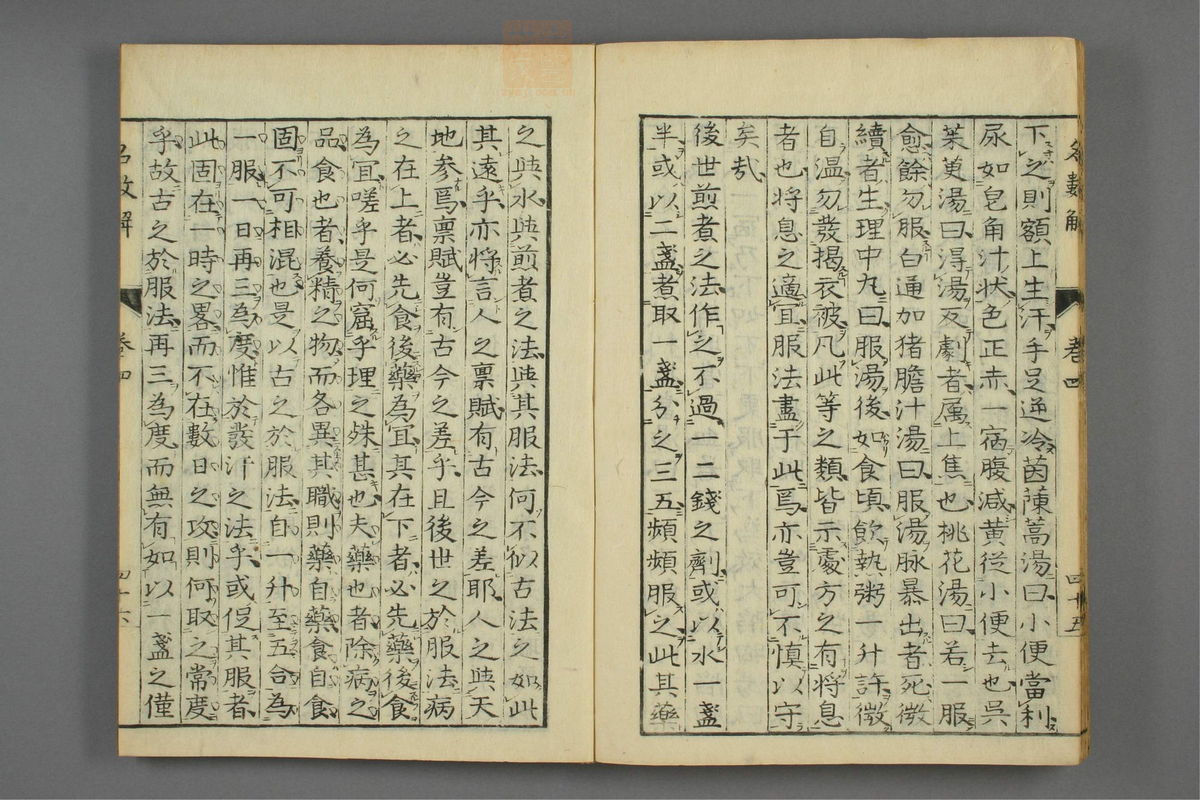 名數解 卷四 四十五
下之則額上生汗手足逆冷茵陳蒿湯曰小便當利
尿如皂角汁状色正赤一宿腹减黄從小便去也吳
茱萸湯曰得湯反劇者属上焦也桃花湯曰若一服
愈餘勿服白通加猪膽汁湯曰服湯脉暴出者死微
續者生理中丸曰服湯後如食頃飲熱粥一升許微
自温勿發揭衣被凡此等之類皆示處方之有将息
者也将息之適宜服法盡于此焉亦豈可不慎以守
矣哉
後世煎煮之法作之不過一二錢之劑或以水一盞
半或以二盞煮取一盞分之三五頻頻服之此其藥
之與水與煎者之法與其服法何不似古法之如此
其遠乎亦将言人之禀賦有古今之差耶人之與天
地参焉禀賦豈有古今之差乎且後世之於服法病
之在上者必先食後藥為宜其在下者必先藥後食
為宜嗟乎是何窟乎理之殊甚也夫藥也者除病之
品食也者養精之物而各異其職則藥自藥食自食
固不可相混也是以古之於服法自一升至五合為
一服一日再三為度惟於發汗之法乎或促其服者
此固在一時之畧而不在數日之攻則何取之常度
乎故古之於服法再三為度而無有如以一盞之僅
名數解 卷四 四十六